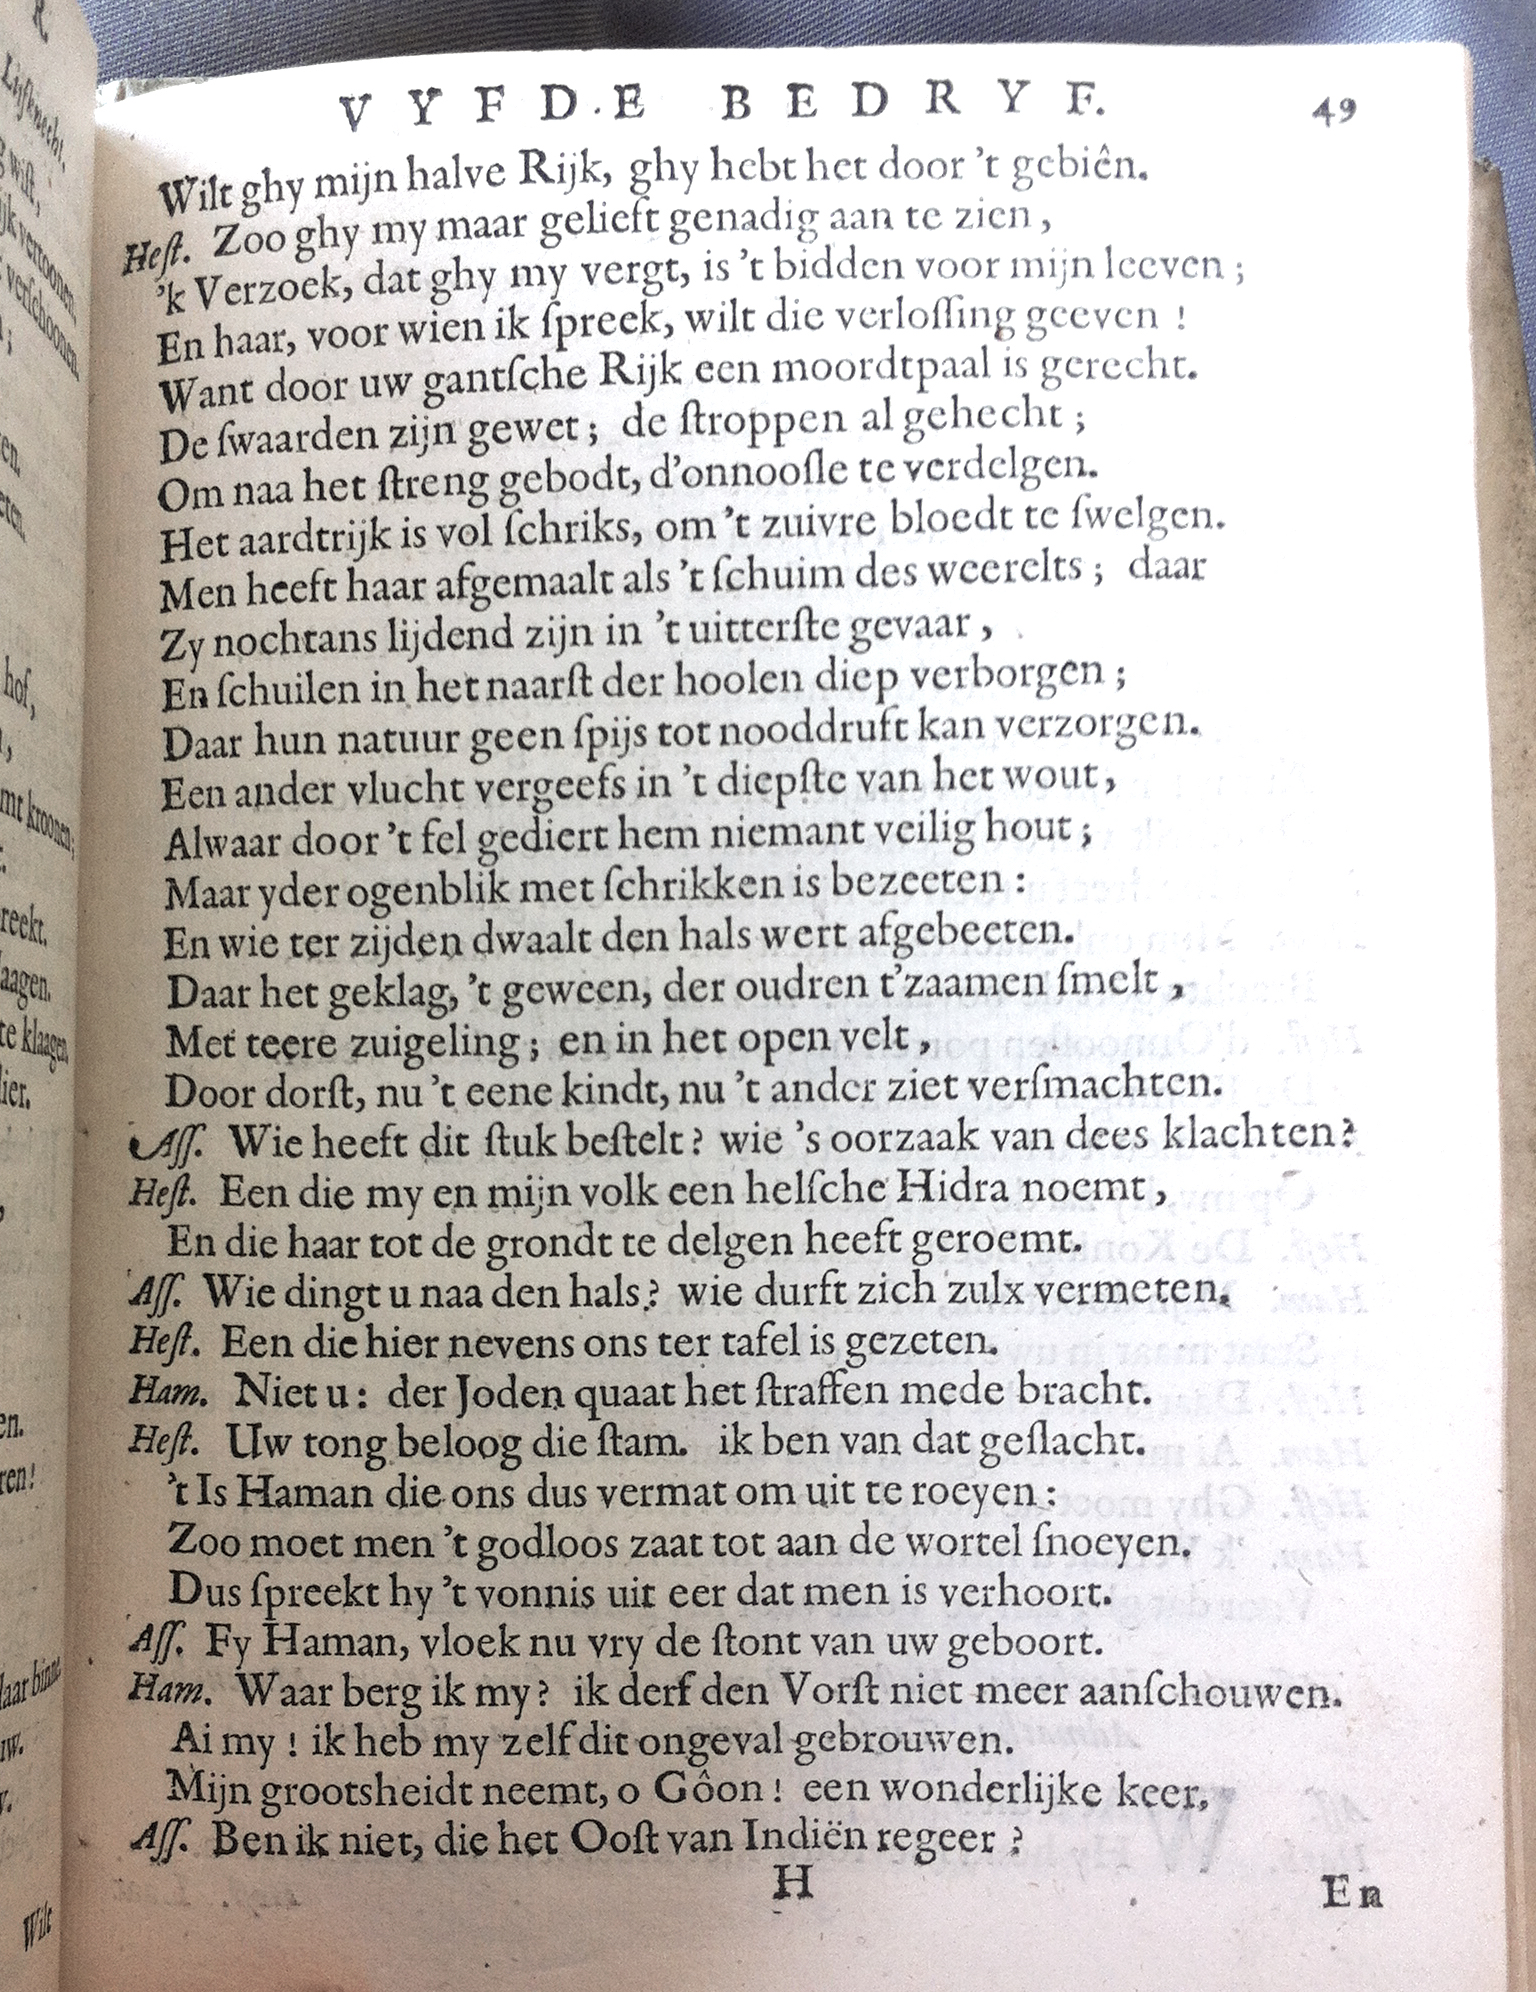 VYFDE BEDRYF. 49
Wilt ghy mijn halve Rijk, ghy hebt het door 't gebiên.
Heſt. Zoo ghy my maar gelieft genadig aan te zien,
'k Verzoek, dat ghy my vergt, is 't bidden voor mijn leeven;
En haar, voor wien ik ſpreek, wilt die verloſſing geeven!
Want door uw gantſche Rijk een moordtpaal is gerecht.
De ſwaarden zijn gewet; de ſtroppen al gehecht;
Om naa het ſtreng gebodt, d'onnooſle te verdelgen.
Het aardtrijk is vol ſchriks, om 't zuivre bloedt te ſwelgen.
Men heeft haar afgemaalt als 't ſchuim des weerelts; daar
Zy nochtans lijdend zijn in 't uitterſte gevaar,
En ſchuilen in het naarſt der hoolen diep verborgen;
Daar hun natuur geen ſpijs tot nooddruft kan verzorgen.
Een ander vlucht vergeefs in 't diepſte van het wout,
Alwaar door 't fel gediert hem niemant veilig hout;
Maar yder ogenblik met ſchrikken is bezeeten:
En wie ter zijden dwaalt den hals wert afgebeeten.
Daar het geklag, 't geween, der oudren t'zaamen ſmelt,
Met teere zuigeling; en in het open velt,
Door dorſt, nu 't eene kindt, nu 't ander ziet verſmachten.
Aſſ. Wie heeft dit ſtuk beſtelt? wie 's oorzaak van dees klachten?
Heſt. Een die my en mijn volk een helſche Hidra noemt,
En die haar tot de grondt te delgen heeft geroemt.
Aſſ. Wie dingt u naa den hals? wie durft zich zulx vermeten.
Heſt. Een die hier nevens ons ter tafel is gezeten.
Ham. Niet u: der Joden quaat het ſtraffen mede bracht.
Heſt. Uw tong beloog die ſtam. ik ben van dat geſlacht.
't Is Haman die ons dus vermat om uit te roeyen:
Zoo moet men 't godloos zaat tot aan de wortel ſnoeyen.
Dus ſpreekt hy 't vonnis uit eer dat men is verhoort.
Aſſ. Fy Haman, vloek nu vry de ſtont van uw geboort.
Ham. Waar berg ik my? ik derf den Vorſt niet meer aanſchouwen.
Ai my! ik heb my zelf dit ongeval gebrouwen.
Mijn grootsheidt neemt, o Gôon! een wonderlijke keer,
Aſſ. Ben ik niet, die het Ooſt van Indiën regeer?
H En